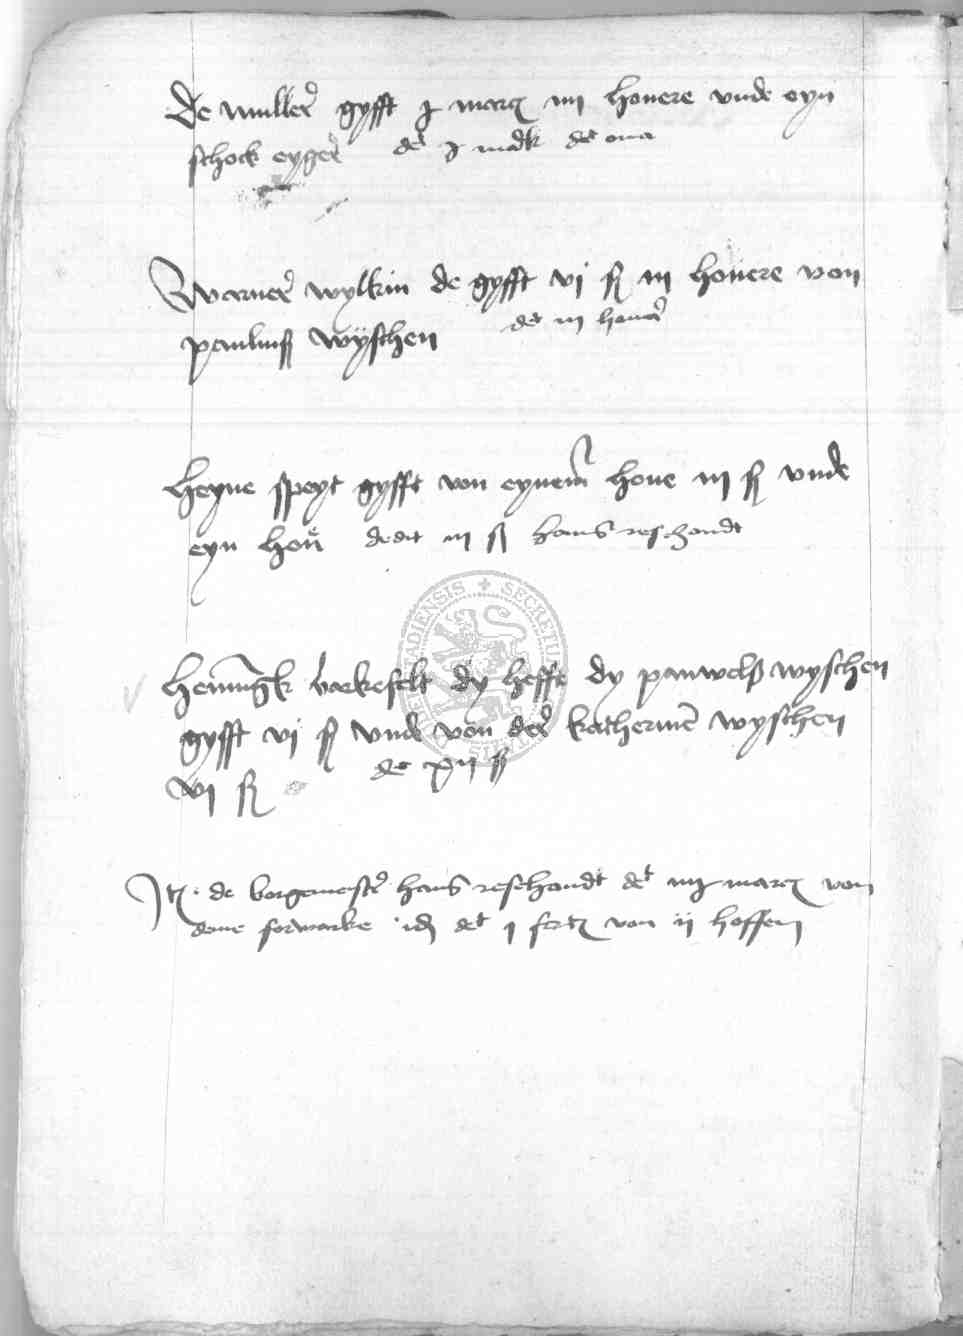 De muller gyfft j marc iiij honere vnde eyn
schock eyger det j mark det oua
Warner wylkin de gyfft vj ß iij honere von
paulinß wÿschen det iij honer
Heyne speyt gyfft von eynem houe iij ß vnde
eyn hon dedit iij ß hans resehandt
Hennigk barkefelt dy heffe dy pauwelß wyschen
gyfft vj ß vnde von der katherinen wyschen
vj ß det xij ß
It. de borgemester hans resehandt det iiij marc von
deme forwarke id det j fert von ij hoffen
SECRETUM